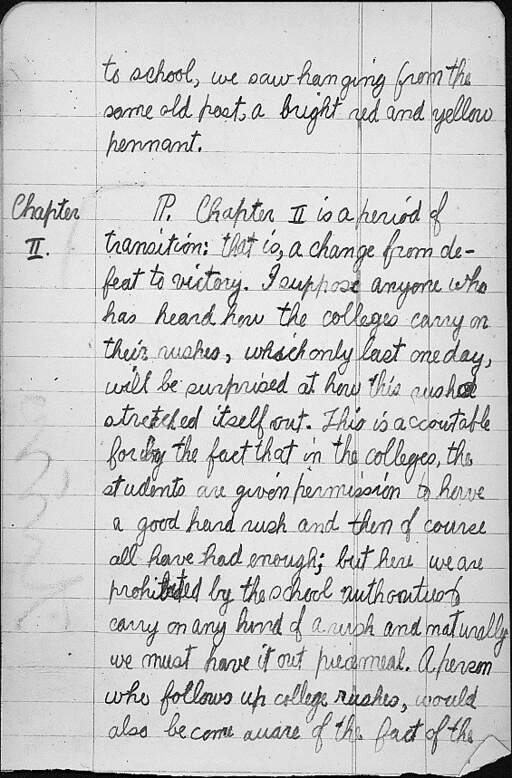 to school, we saw hanging from the
same old post, a bright red and yellow
pennant.
Chapter
II.
¶. Chapter II is a period of
transition: that is, a change from de-
feat to victory. I suppose anyone who
has heard how the colleges carry on
their rushes, which only last one day,
will be surprised at how this rush
stretched itself out. This is accountable
for by the fact that in the colleges, the
students are given permission to have
a good hard rush and then of course
all have had enough; but here we are
prohibited by the school authorities to
carry on any kind of a rush and naturally
we must have it out piecemeal. A person
who follows up college rushes, would
also become aware of the fact of the